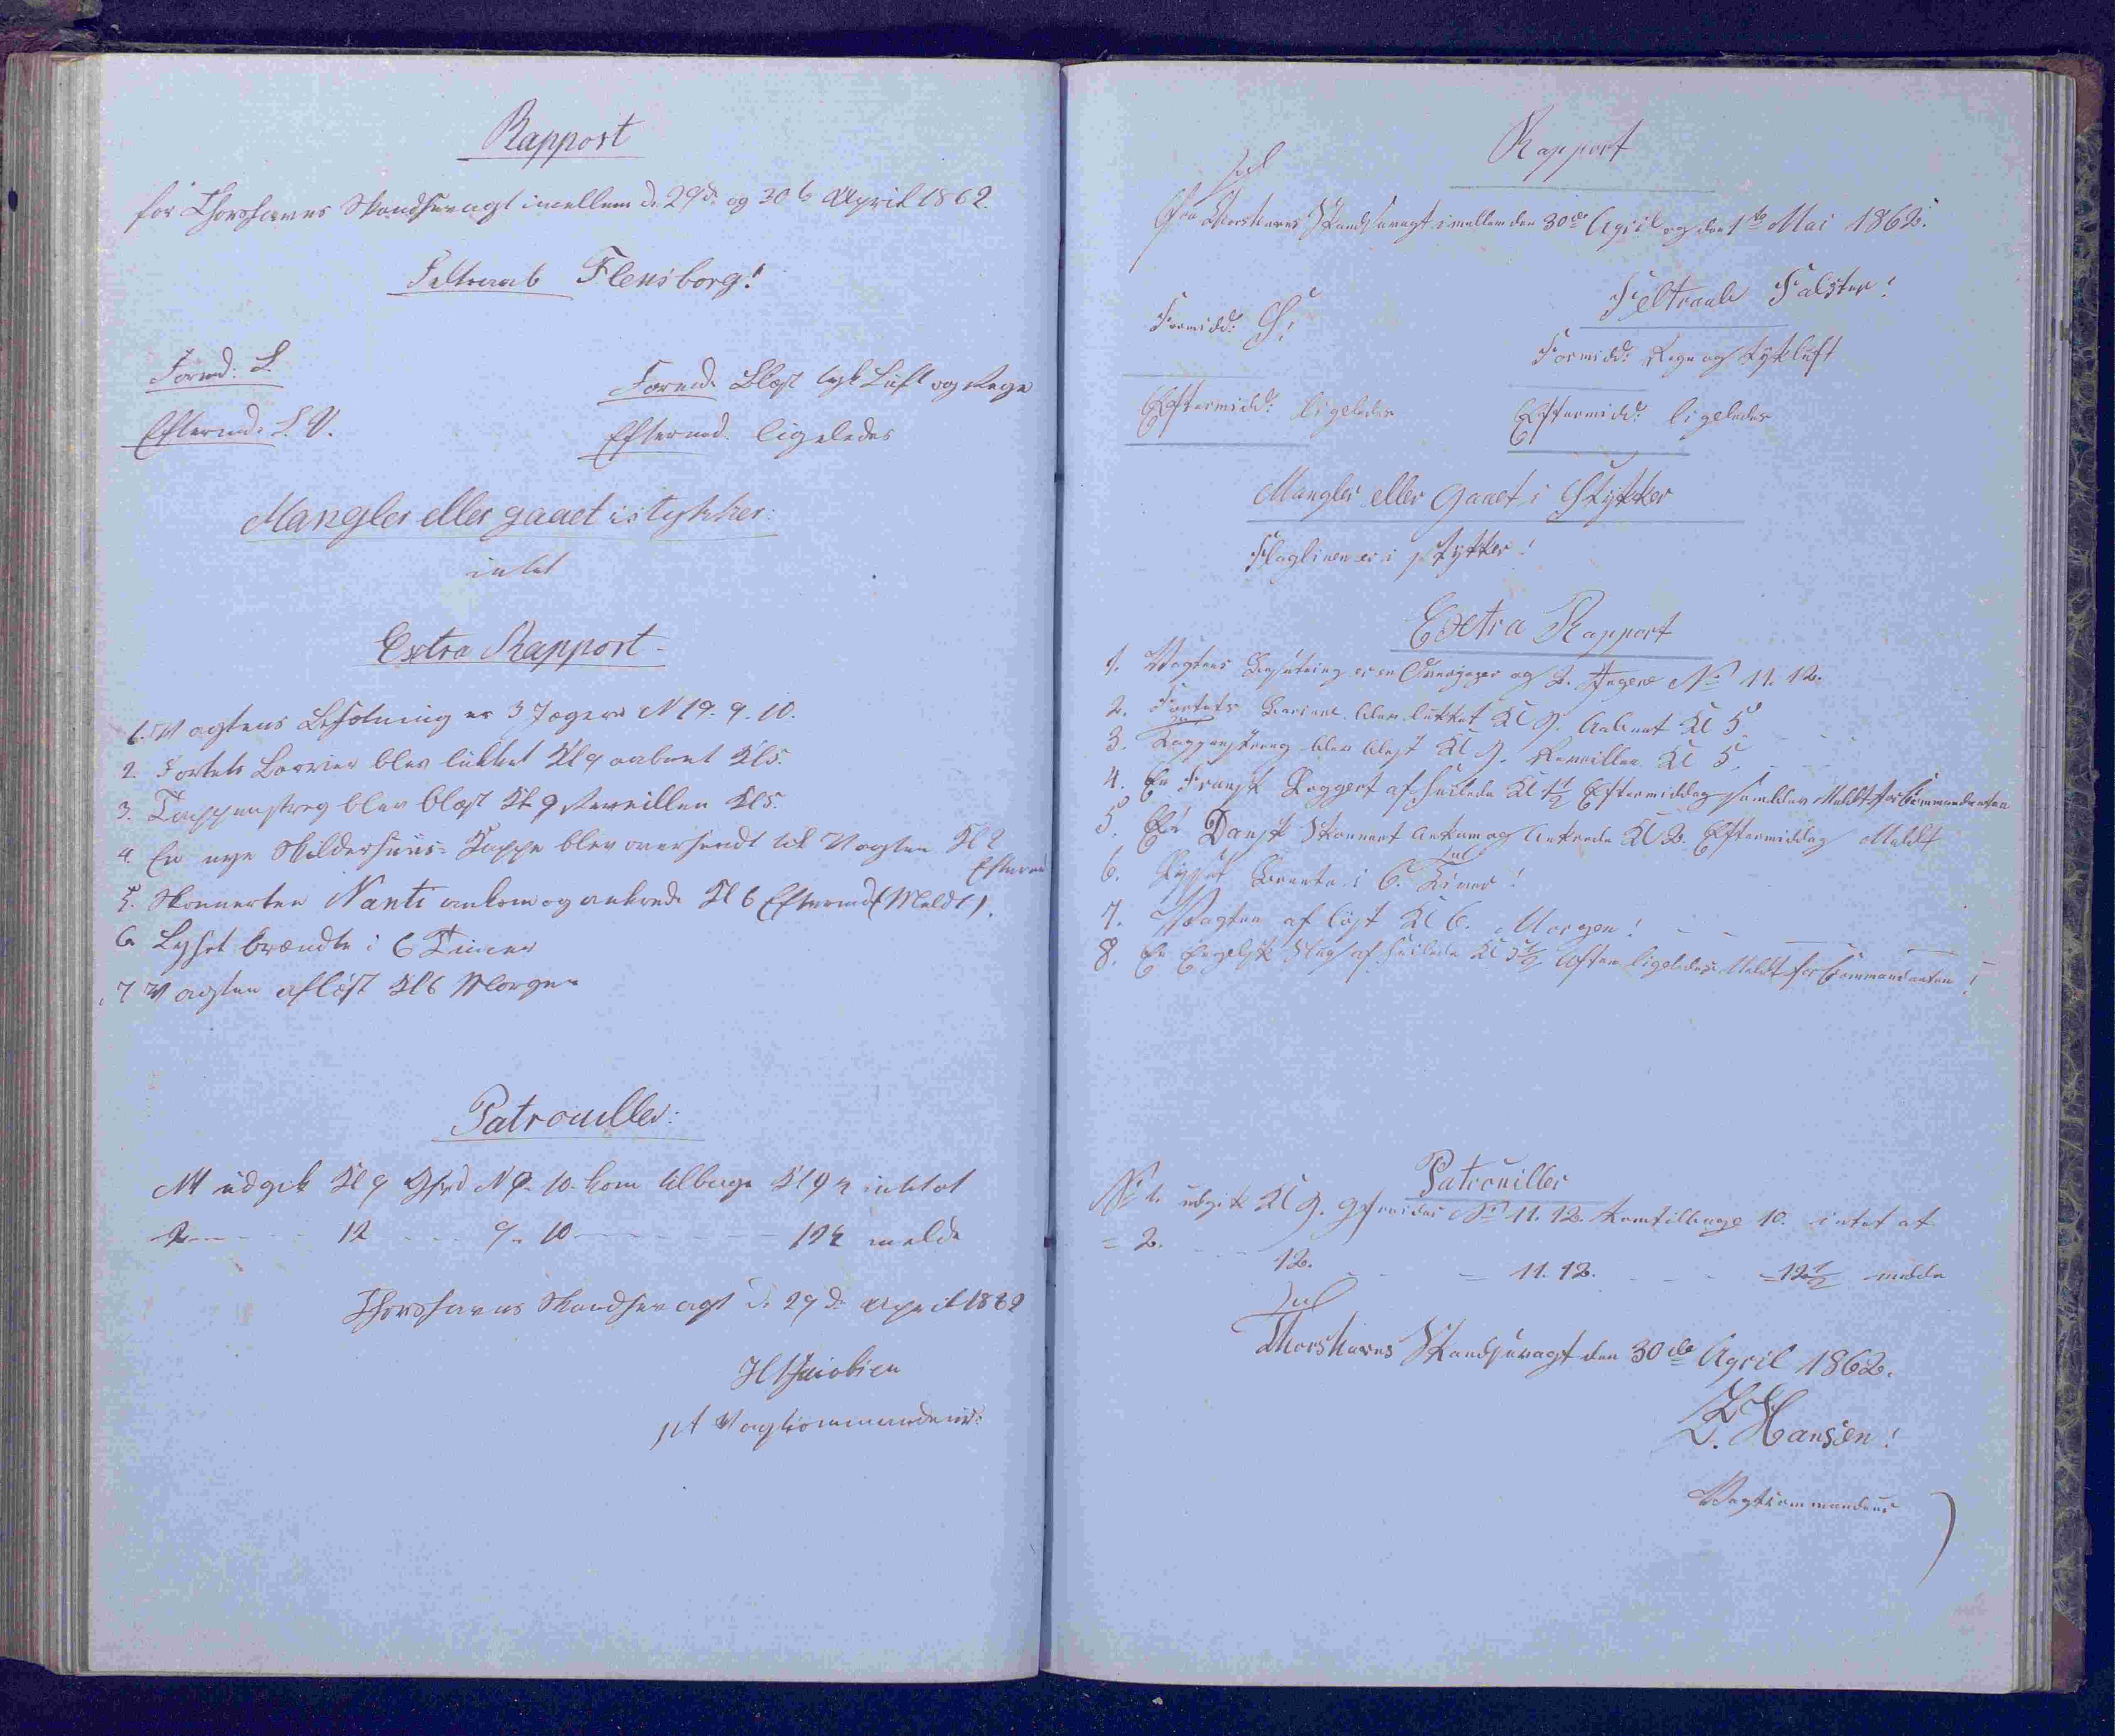 Rapport
for Thorshavns Skandsevagt imellem d. 29d. og 30te April 1862.
Feltraab Flensborg!
Formd: S.
Formd. Blæst tyk Luft og Regn
Eftermd. S. V.
Eftermd. ligeledes
Mangler eller gaaet istykker:
intet
Extra Rapport
1. Vagtens Besætning er 3 Jægere N 19. 9. 10.
2. Fortets Barrier blev lukket Kl 9 aabnet Kl 5.
3. Tappenstreg blev blæst Kl. 9 Reveillen Kl 5.
4. En nye Skilderhuus-Kappe blev oversendt til Vagten Kl 2
Eftermd
5. Skonnerten Nanti ankom og ankrede Kl 6 Eftermd (Meldt).
6. Lyset brændte i 6 Timer
7 Vagten afløst Kl 6 Morgen
Patrouiller:
N1 udgik Kl 9 Gefrd N 9. 10. kom tilbage Kl 9½ intet at
2 - - - 12 - - - 9. 10 - - - 12½ melde
Thorshavns Skandsevagt d. 29d. April 1862
H Jacobsen
pt Vagtkommandeur.
Rapport
Fra Thorshavns Skandsevagt imellem den 30de April og den 1ste Mai 1862.
Feltraab Falster!
Formidd: S!
Formidd: Regn og Tykluft
Eftermidd: ligeledes
Eftermidd: ligeledes
Mangler eller gaaet i Stykker
Flaglinen er i stykker!
Extra Rapport
1. Vagtens Besætning er en Overjæger og 2. Jægere No 11. 12.
2. Fortets Barriere blev lukket Kl 9. Aabnet Kl 5.
3. Tappenstreg blev blæst Kl 9. Reveillen Kl 5.
4. En Fransk Loggert afseilede Kl 1½ Eftermiddag som blev Meldt for Commandanten
5. En Dansk Skonnert Ankom og Ankrede Kl 2. Eftermiddag Meldt
6. Lyset Brente i 6. Timer!
7. Vagten afløst Kl 6. Morgen!
8. En Engelsk Slup afseilede Kl 5½ Aften ligeledes Meldt for Commandanten!
Patrouiller
No 1. udgik Kl 9. Gefreider No 11. 12. kom tilbage 10. intet at
= 2. - - - 12. - - = 11. 12. - - - = 12½ melde
Thorshavns Skandsevagt den 30de April 1862.
Z. Hansen!
Vagtcommandeur